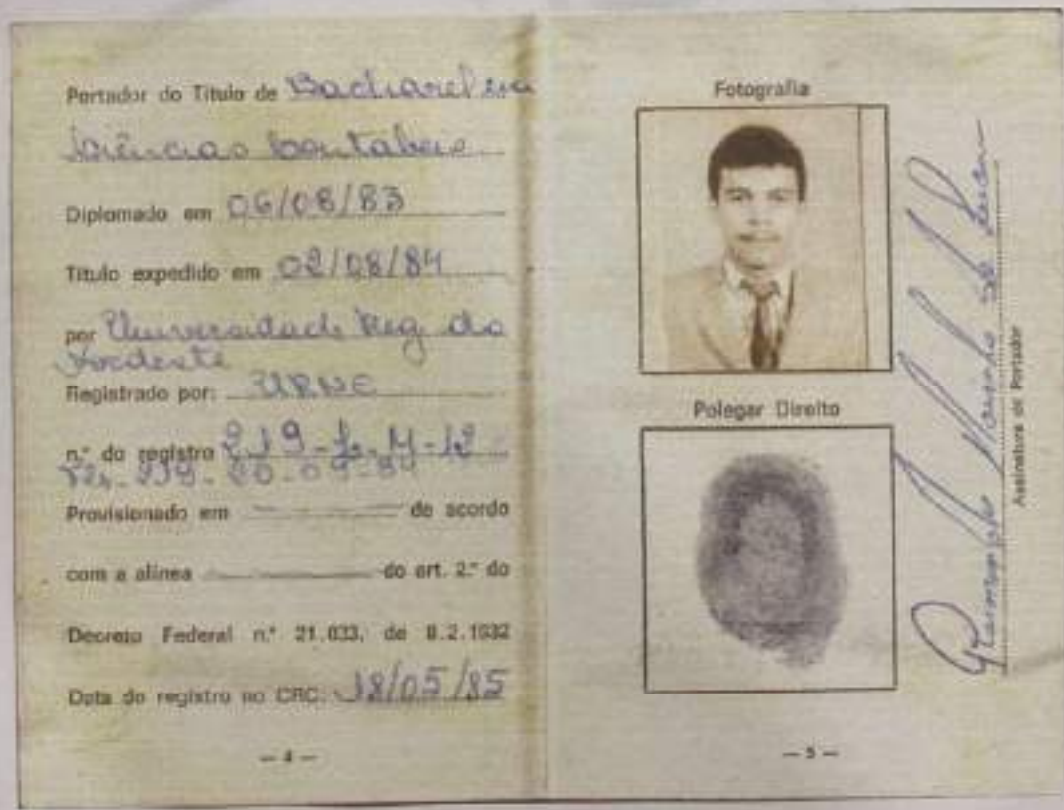 Portador do Título de Bacharel em
Ciências Contábeis
Diplomado em 06/08/83
Título expedido em 02/08/84
por Universidade Reg do
Nordeste
Registrado por: URNE
n.º do registro 219
Provisionado em de acordo
com a alínea do art. 2.º do
Decreto Federal n.º 21.033, de 8.2.1932
Data do registro no CRC: 18/05/85
— 4 —
Fotografia
Polegar Direito
Assinatura do Portador
— 5 —